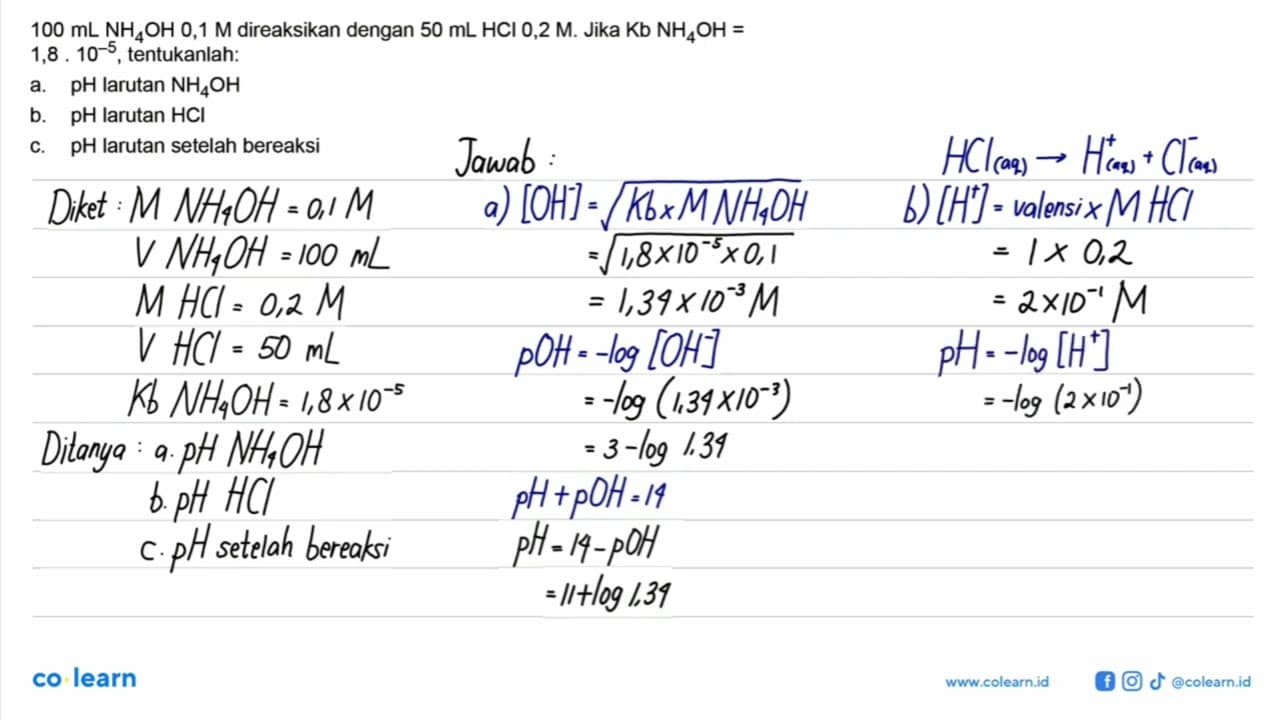 100 mL NH₄OH 0,1 M direaksikan dengan 50 mL HCl 0,2 M. Jika Kb NH₄OH =
1,8 . 10⁻⁵, tentukanlah:
a. pH larutan NH₄OH
b. pH larutan HCl
c. pH larutan setelah bereaksi
Diket : M NH₄OH = 0,1 M
V NH₄OH = 100 mL
M HCl = 0,2 M
V HCl = 50 mL
Kb NH₄OH = 1,8 × 10⁻⁵
Ditanya : a. pH NH₄OH
b. pH HCl
c. pH setelah bereaksi
Jawab :
a) [OH⁻] = √Kb × M NH₄OH
= √1,8 × 10⁻⁵ × 0,1
= 1,34 × 10⁻³ M
pOH = -log [OH⁻]
= -log (1,34 × 10⁻³)
= 3 - log 1.34
pH + pOH = 14
pH = 14 - pOH
= 11 + log 1,34
HCl(aq) → H⁺(aq) + Cl⁻(aq)
b) [H⁺] = valensi × M HCl
= 1 × 0,2
= 2 × 10⁻¹ M
pH = -log [H⁺]
= -log (2 × 10⁻¹)
co learn
www.colearn.id
@colearn.id